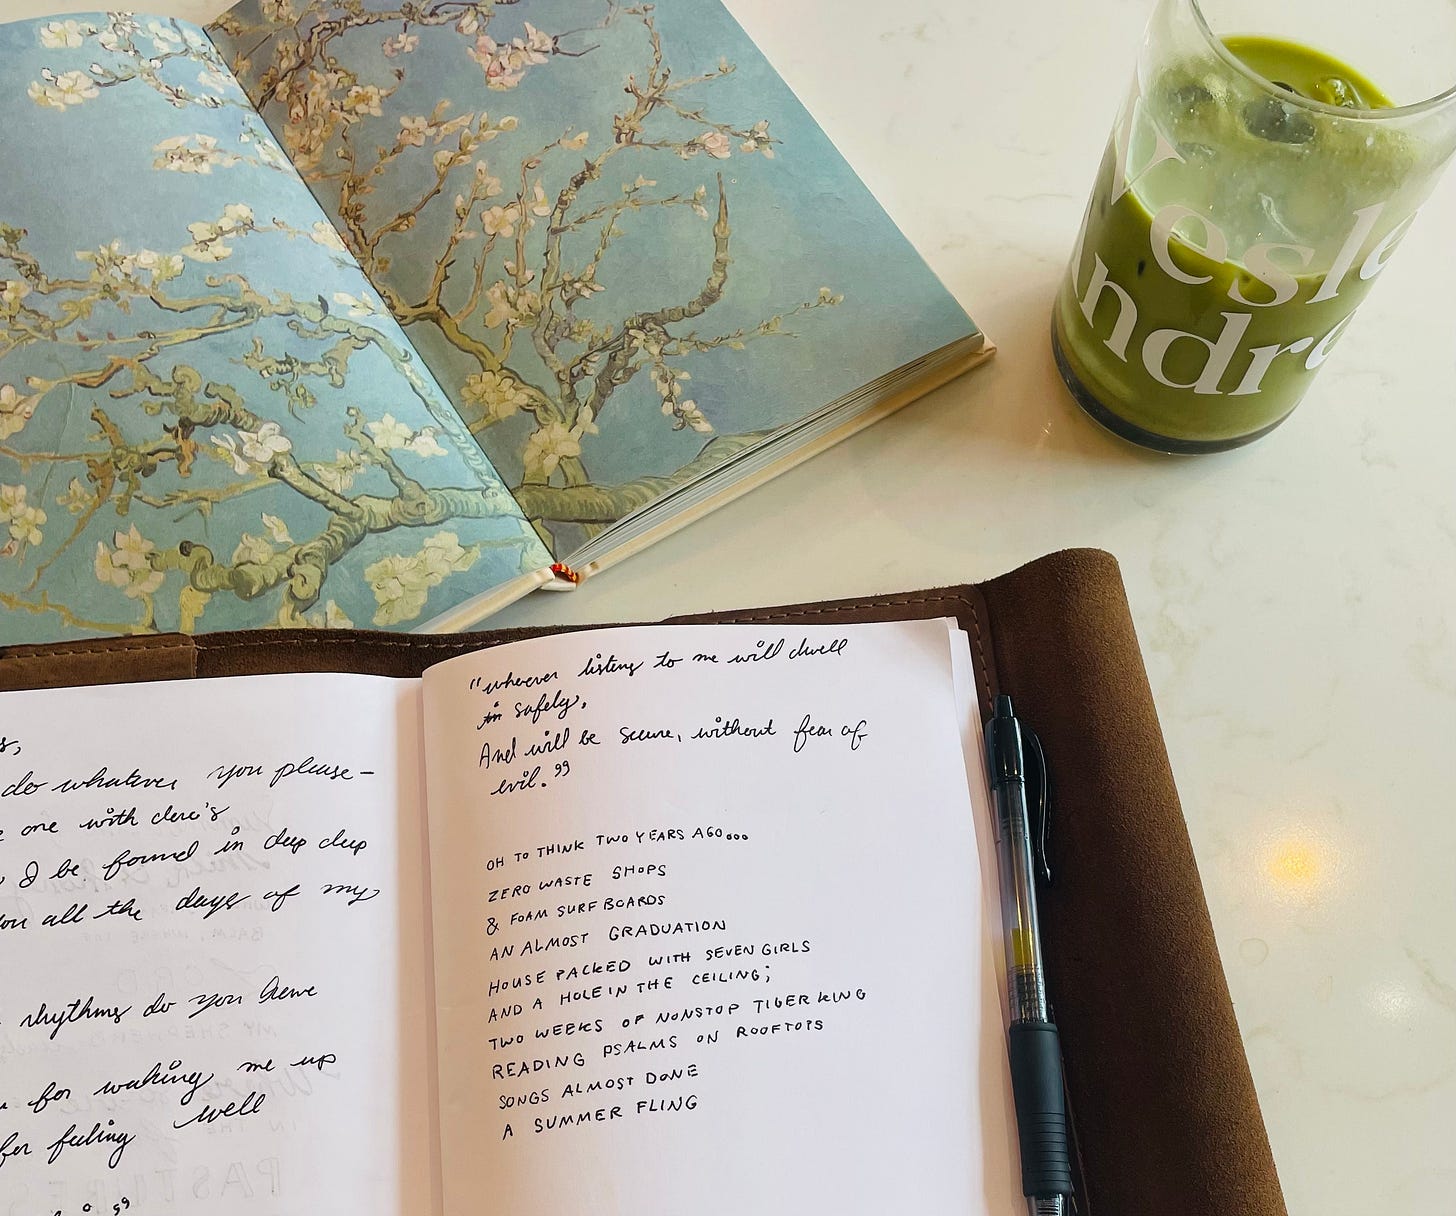 s,
do whatever you please—
one with dere's
I be found in deep deep
you all the days of my
rhythms do you have
for waking me up
for feeling well
"whoever listens to me will dwell
in safely,
And will be secure, without fear of
evil."
OH TO THINK TWO YEARS AGO...
ZERO WASTE SHOPS
& FOAM SURF BOARDS
AN ALMOST GRADUATION
HOUSE PACKED WITH SEVEN GIRLS
AND A HOLE IN THE CEILING;
TWO WEEKS OF NONSTOP TIGER KING
READING PSALMS ON ROOFTOPS
SONGS ALMOST DONE
A SUMMER FLING
Wesle
Andr